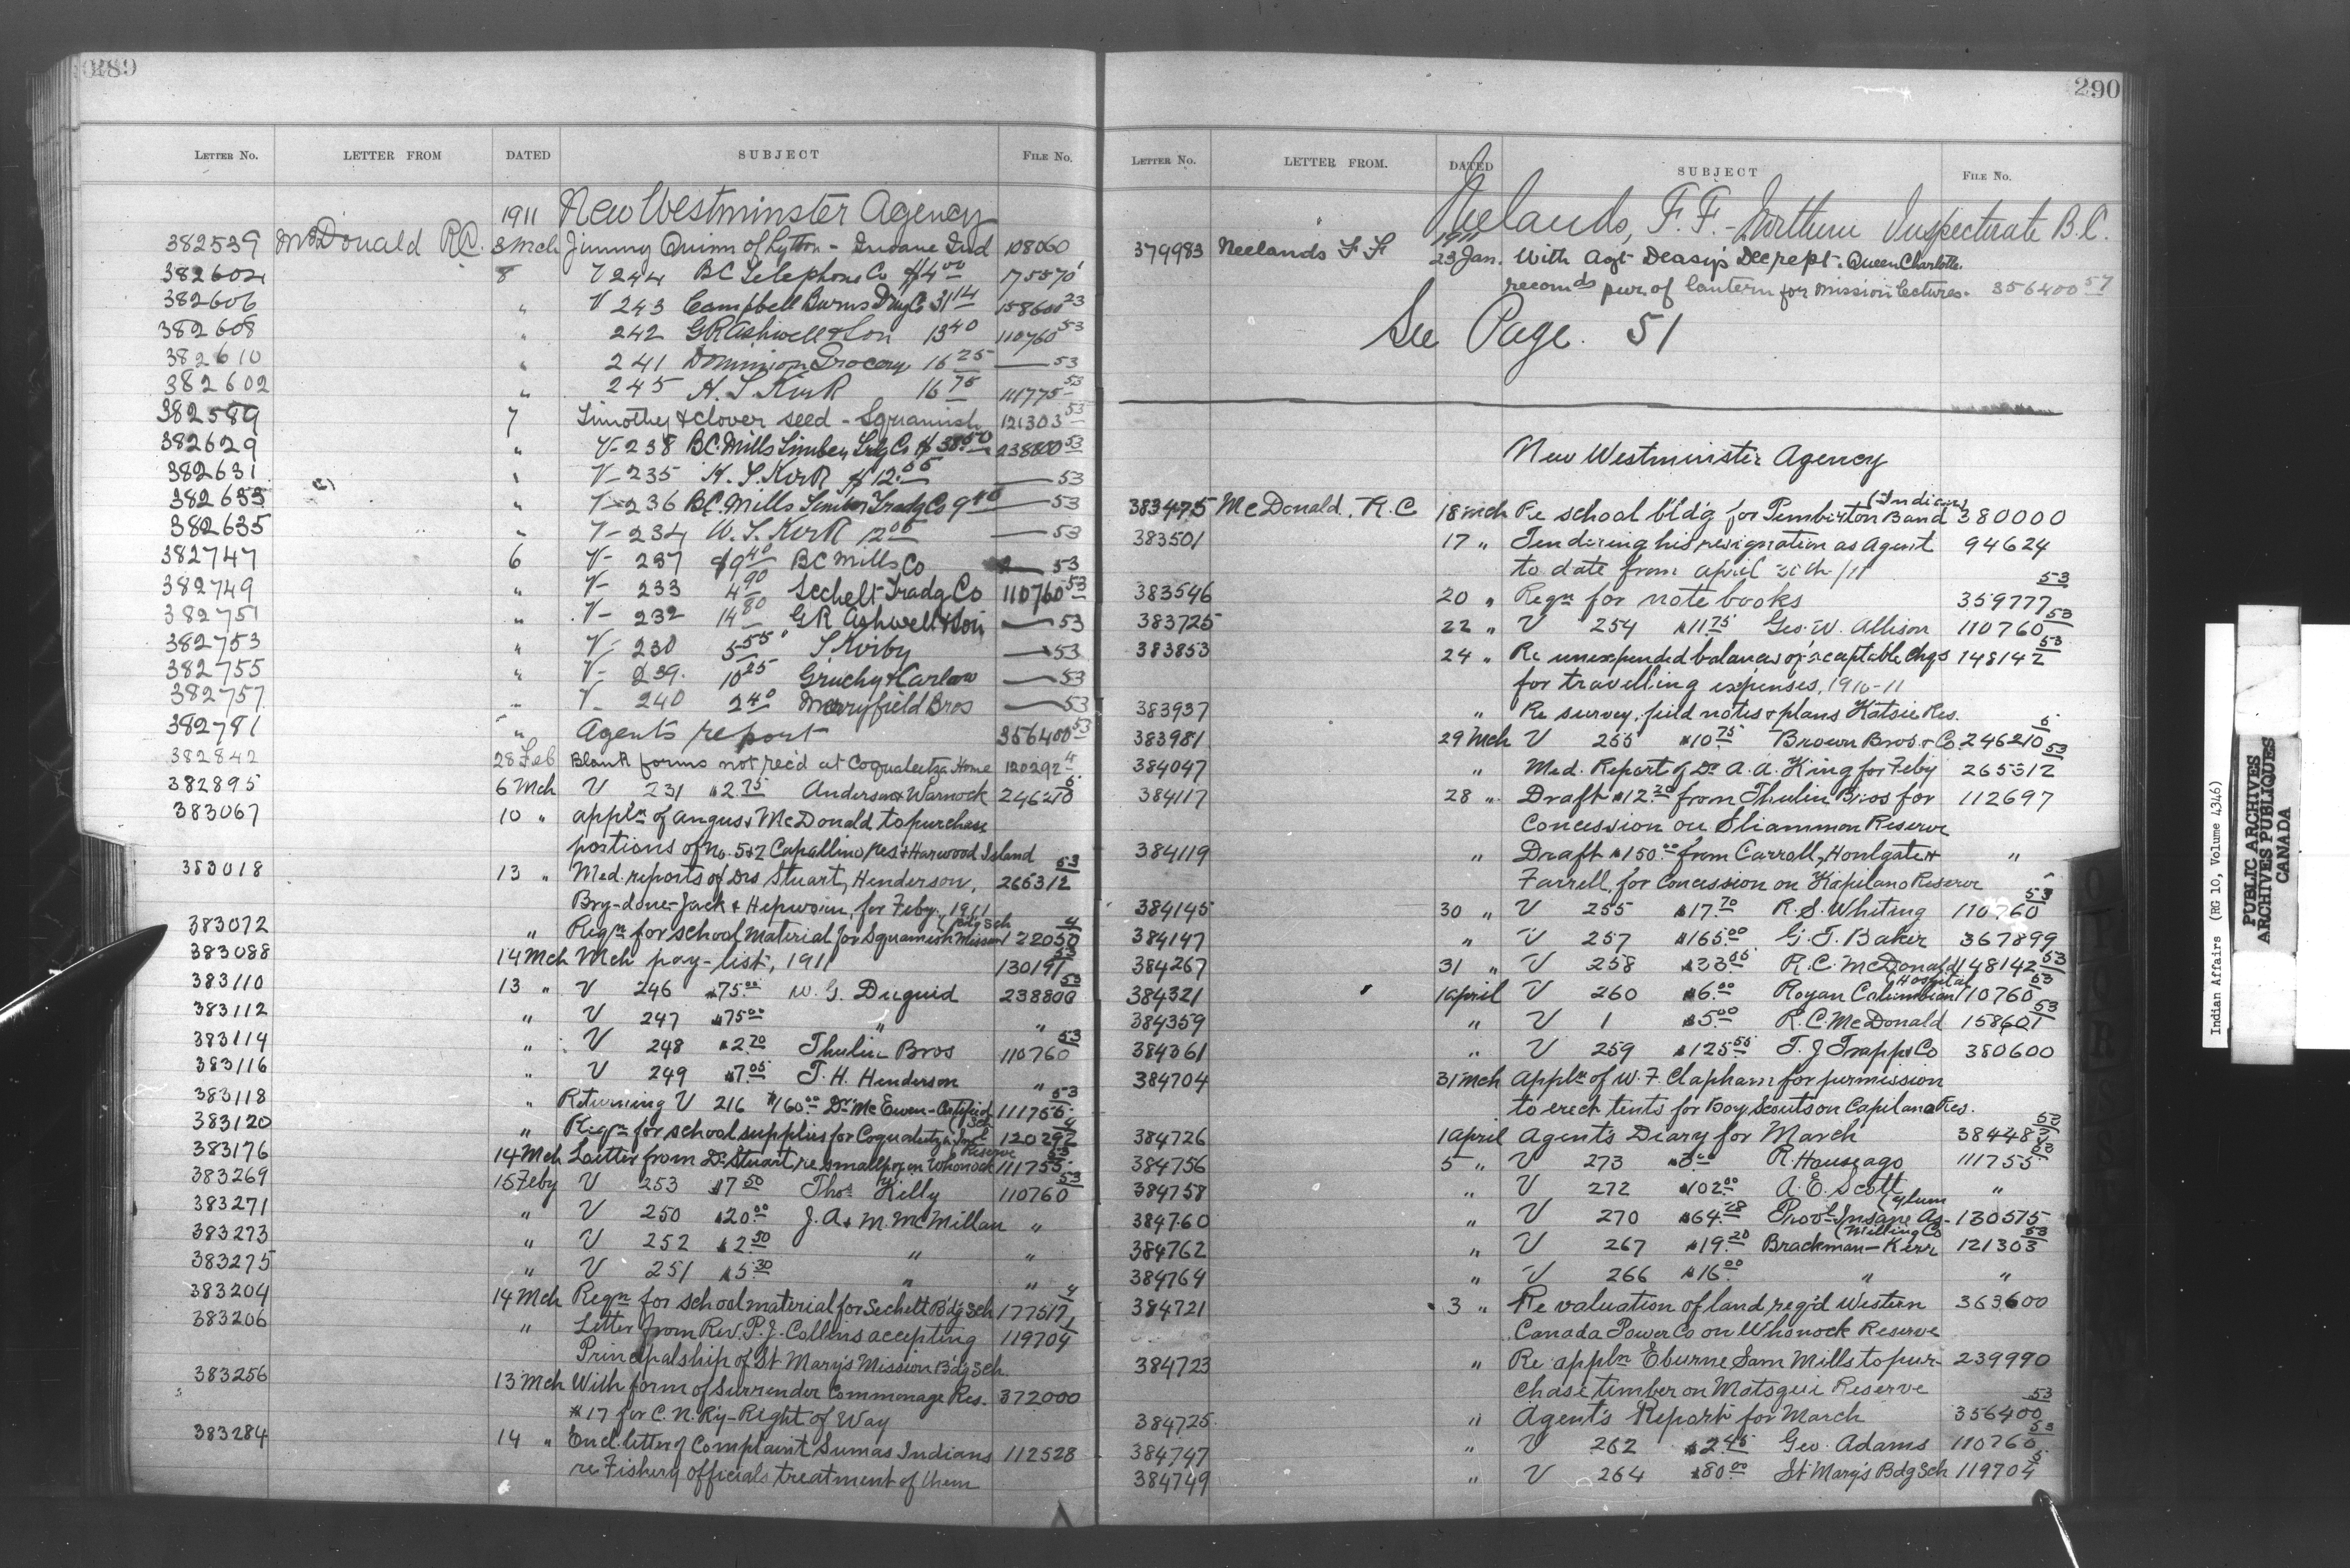 289
LETTER NO. LETTER FROM DATED SUBJECT FILE NO.
1911 New Westminster Agency
382539 McDonald R.C. 3 Mch Jimmy Quinn of Lytton - Insane Ind 108060
382604 8 V 244 BC Telephone Co $4 00 175070
382606 " V 243 Campbell Burns Drug Co 31 14 158600 23
382608 " 242 G R Ashwell & Son 13 40 110760 53
382610 " 241 Dominion Grocery 16 25 — 53
382602 " 245 H. S. Kirk 16 75 111775 53
382589 7 Timothy & clover seed - Squamish 121303 53
382629 " V- 238 B.C. Mills Timber Trdg Co $38.50 238800 53
382631 " V- 235 H. S. Kirk $12.00 — 53
382633 " V- 236 B.C. Mills Timber Tradg Co 9 40 — 53
382635 " V- 234 W. S. Kirk 12 00 — 53
382747 6 V- 237 $9 40 BC Mills Co — 53
382749 " V- 233 4 90 Sechelt Tradg Co 110760 53
382751 " V- 232 14 80 G R Ashwell & Son — 53
382753 " V- 230 5 55 S Kirby — 53
382755 " V- 239. 10 25 Gruchy & Harlow — 53
382757 " V- 240 2 40 Merryfield Bros — 53
382781 " Agents report 356400 53
382842 28 Feb Blank forms not rec'd at Coqualeetza Home 120292 4
382895 6 Mch V 231 $2.75 Anderson & Warnock 246210 5
383067 10 " appln of Angus McDonald to purchase
portions of No. 5 & 2 Capallino Res & Harwood Island
383018 13 " Med. reports of Drs Stuart, Henderson, 265312 53
Bry-done-Jack & Hepworth, for Feby., 1911
383072 " Reqn for school material for Squamish Mission (Bdg Sch 122050 4
383088 14 Mch Mch pay-list, 1911 130191 53
383110 13 " V 246 $75.00 W. G. Duguid 238800 53
383112 " V 247 $75.00 " "
383114 " V 248 $2.70 Thulin Bros 110760 53
383116 " V 249 $7.05 T. H. Henderson "
383118 " Returning V 216 $160.00 Dr McEwen - Certified 111755 53
383120 " Reqn for school supplies for Coqualeetza Inst (Sch 120292 4
383176 14 Mch Letter from Dr Stuart, re smallpox on Whonock Reserve 111755 53
383269 15 Feby V 253 $7 50 Thos Kelly 110760 53
383271 " V 250 $20.00 J. A. & M. McMillan "
383273 " V 252 $2.50 " "
383275 " V 251 $5.30 " "
383204 14 Mch Reqn for school material for Sechelt Bdg Sch 177517 4
383206 " Letter from Rev. P. J. Collins accepting 119704 1
Principalship of St Mary's Mission Bdg Sch.
383256 13 Mch With form of Surrender Commonage Res. 372000
#17 for C. N. R'y - Right of Way
383284 14 " Encl. letter of Complaint Sumas Indians 112528
re Fishery officials treatment of them
290
LETTER NO. LETTER FROM. DATED SUBJECT FILE NO.
Neelands, F. F. - Northern Inspectorate B.C.
1911
379983 Neelands F F 23 Jan. With Agt Deasy's Dec rept. Queen Charlotte.
recomds pur. of lantern for mission lectures. 356400 57
See Page. 51
New Westminster Agency
383475 McDonald. R. C 18 Mch Re school bld'g for Pemberton Band (Indians 380000
383501 17 " Tendering his resignation as Agent 94624
to date from April 30th/11
383546 20 " Reqn for note books 359777 53
383725 22 " V 254 $11.75 Geo. W. Allison 110760 53
383853 24 " Re unexpended balances of acceptable chgs 148142 53
for travelling expenses, 1910-11
383937 " Re survey, field notes & plans Katsie Res.
383981 29 Mch V 255 $10.75 Brown Bros. & Co. 246210 5
384047 " Med. Report of Dr A. A. King for Feby 265312 53
384117 28 " Draft $12.20 from Thulin Bros for 112697
Concession on Sliammon Reserve
384119 " Draft $150.00 from Carroll, Houlgate & "
Farrell, for concession on Kapilano Reserve
384145 30 " V 255 $17.70 R. S. Whiting 110760 53
384147 " V 257 $165.00 G. T. Baker 367899
384267 31 " V 258 $33.05 R. C. McDonald 148142 53
384321 1 April V 260 $6.00 Royan Columbian (Hospital 110760 53
384359 " V 1 $5.00 R. C. McDonald 158601 53
384361 " V 259 $125.55 T. J Trapp & Co 380600
384704 31 Mch Appln of W. F. Clapham for permission
to erect tents for Boy Scouts on Capilano Res.
384726 1 April Agent's Diary for March 38448 53
384756 5 " V 273 $3.00 R. Houseago 111755 53
384758 " V 272 $102.00 A. E. Scott "
384760 " V 270 $64.28 Provl Insane As- (ylum 130575
384762 " V 267 $19.20 Brackman-Kerr (Milling Co 121303 53
384764 " V 266 $16.00 " "
384721 3 " Re valuation of land req'd Western 363600
Canada Power Co on Whonock Reserve
384723 " Re appln Eburne Sam Mills to pur- 239990
chase timber on Matsqui Reserve
384725 " Agent's Report for March 356400 53
384747 " V 262 $2.45 Geo. Adams 110760 53
384749 " V 264 $80.00 St Mary's Bdg Sch 119704 5
Indian Affairs (RG 10, Volume 4346)
PUBLIC ARCHIVES
ARCHIVES PUBLIQUES
CANADA